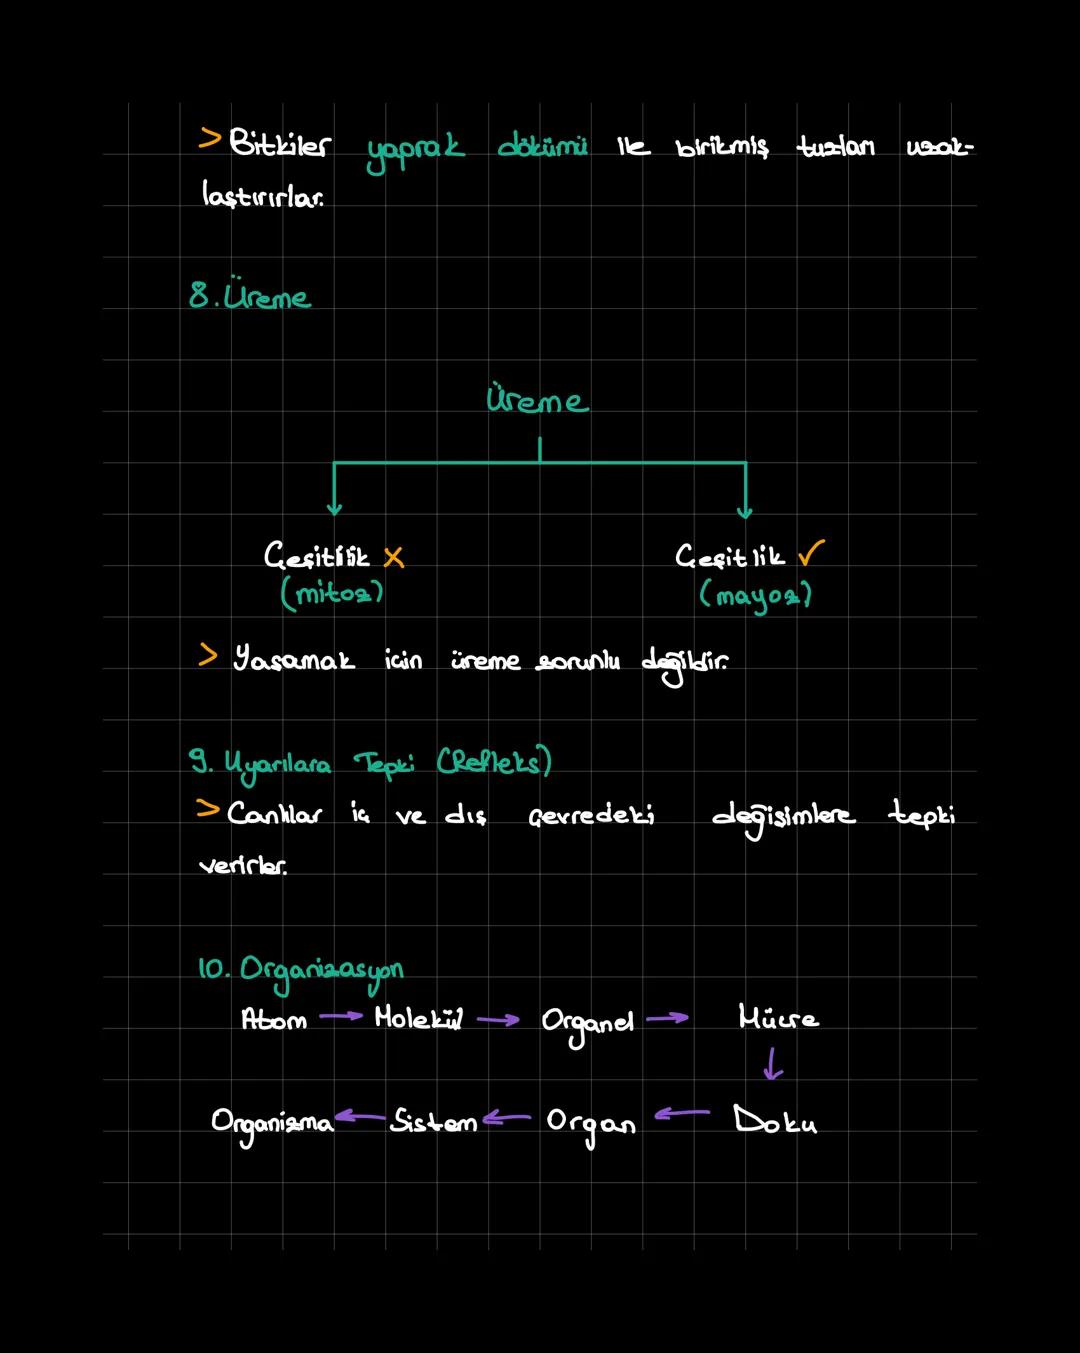 > Bitkiler yaprak dökümü ile birikmiş tuzları uzak-
laştırırlar.
8. Üreme
Üreme
Çeşitlilik X
Çeşitlik ✓
(mitoz)
(mayoz)
> Yaşamak için üreme zorunlu değildir.
9. Uyarılara Tepki (Refleks)
> Canlılar iç ve dış çevredeki değişimlere tepki
verirler.
10. Organizasyon
Atom → Molekül → Organel → Hücre
↓
Organizma ← Sistem ← Organ ← Doku